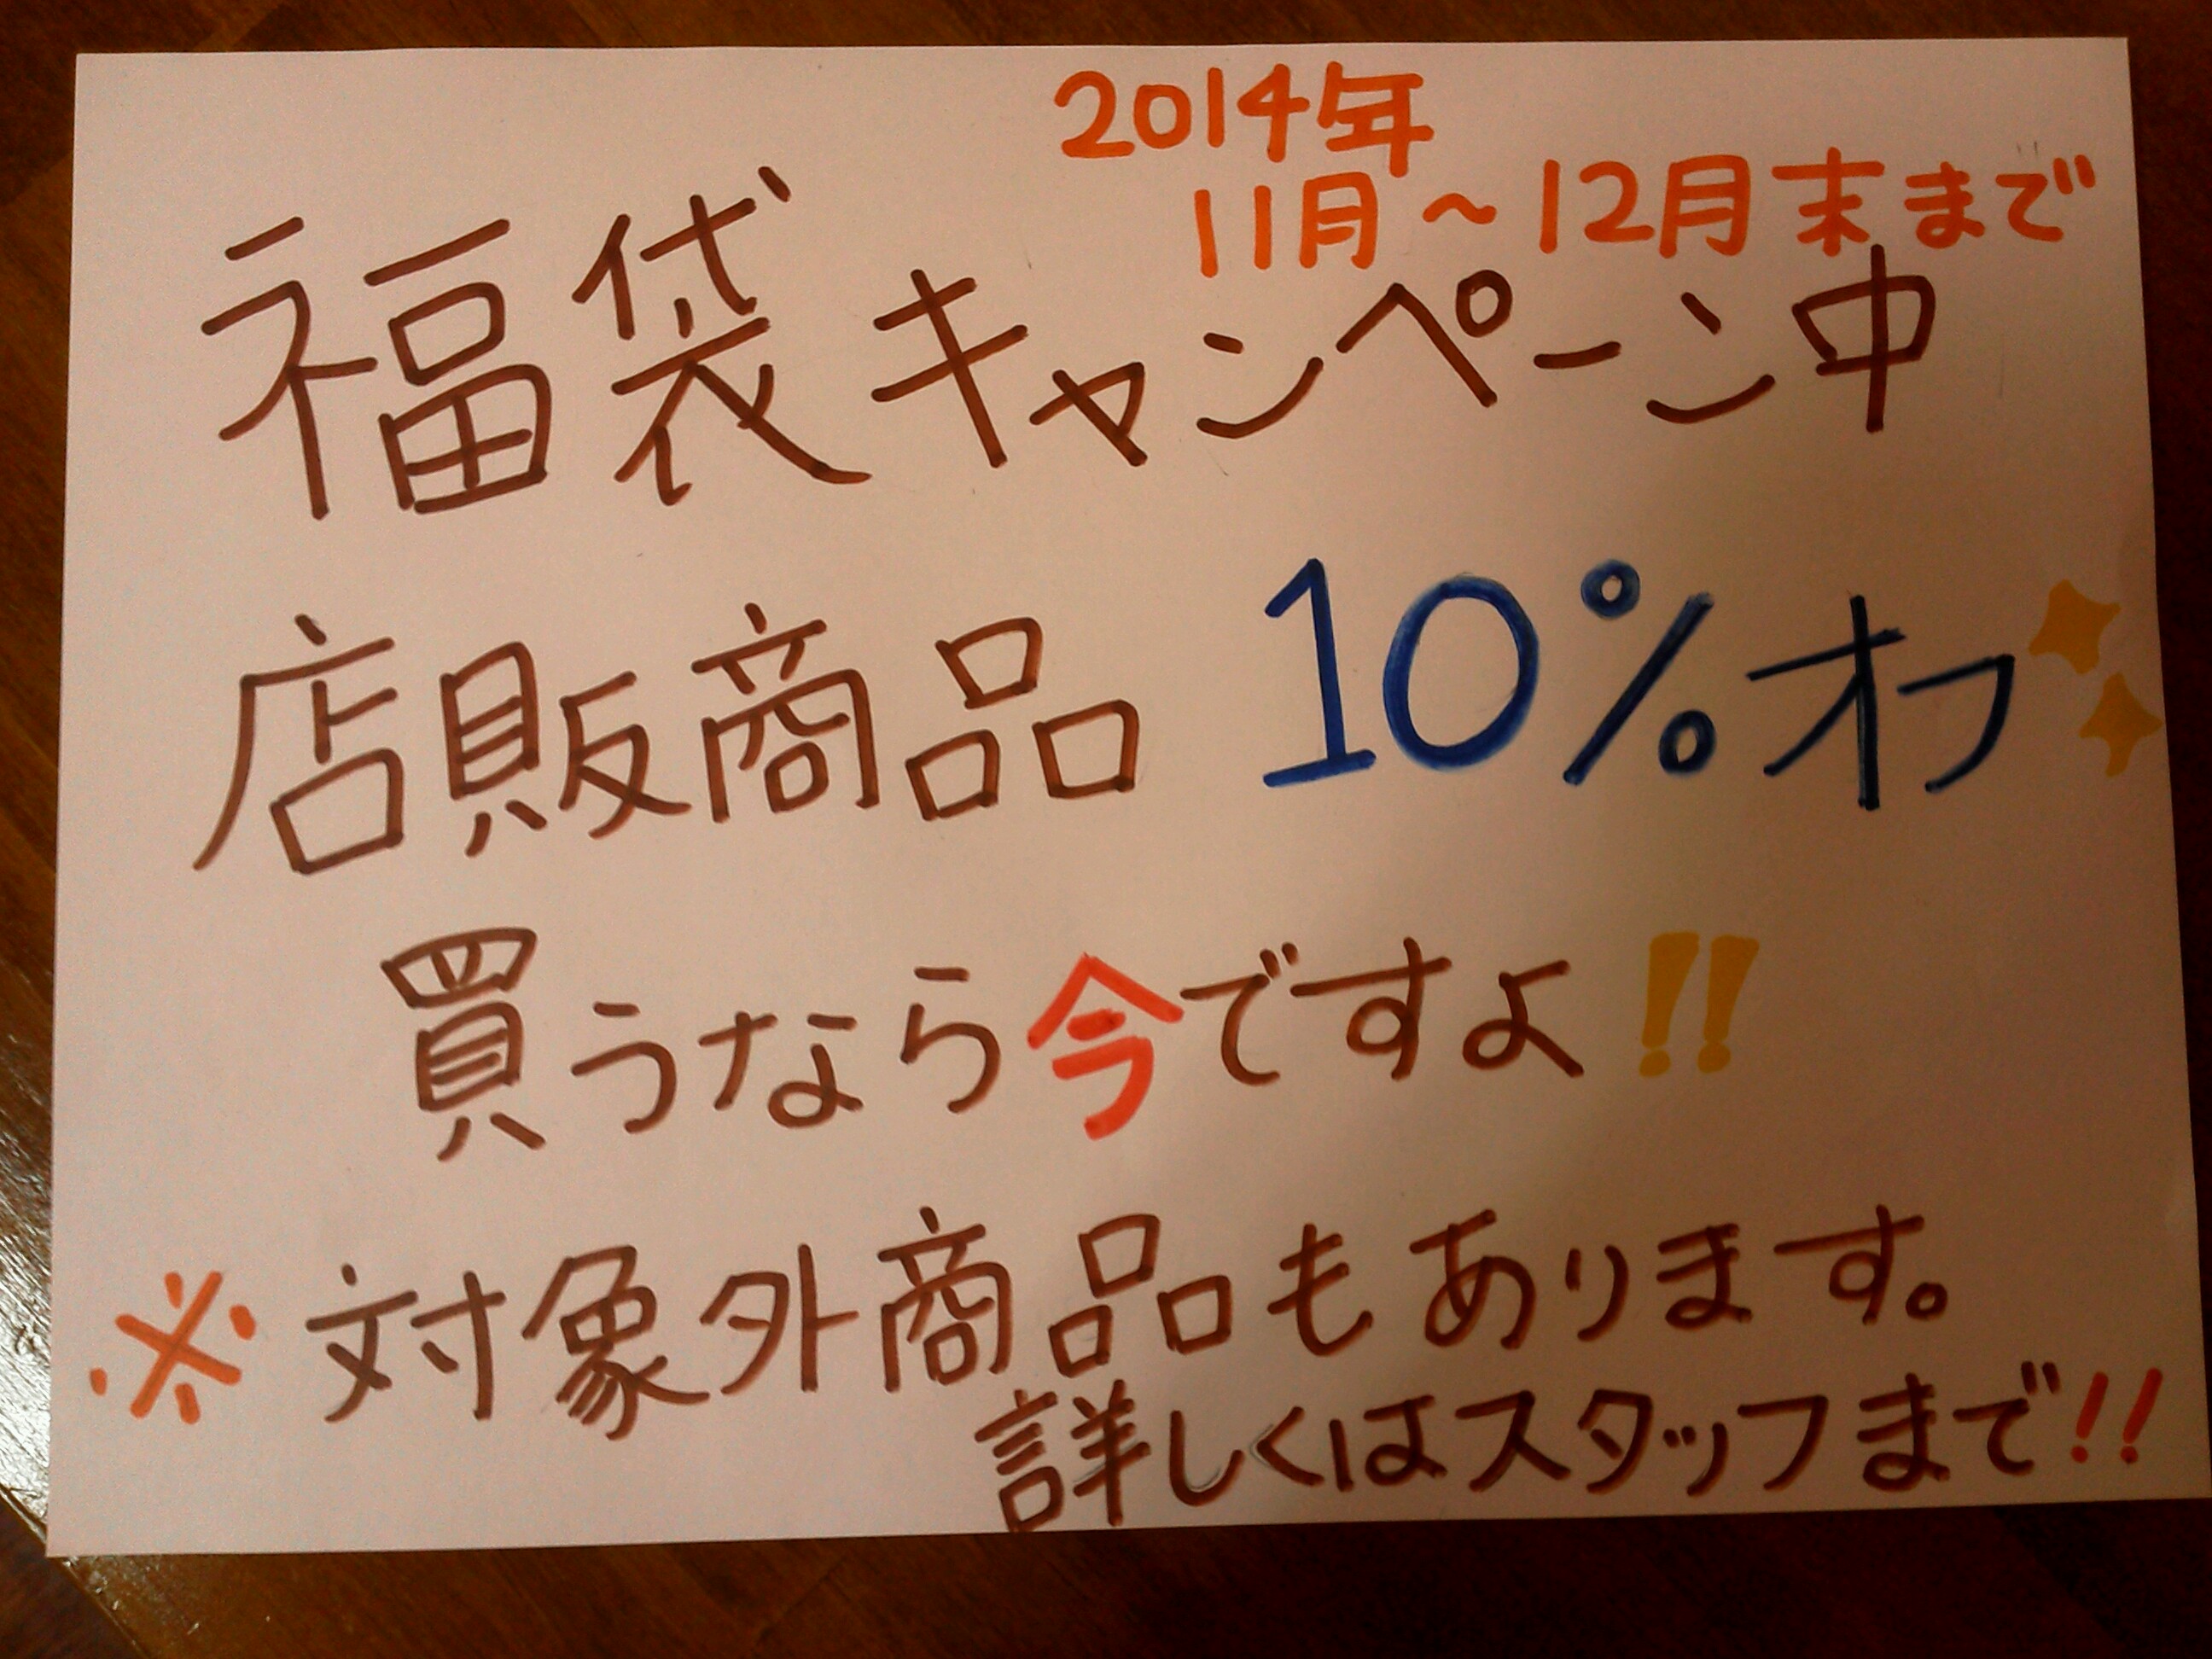 2014年
11月～12月末まで
福袋キャンペーン中
店販商品 10%オフ
買うなら今ですよ!!
※対象外商品もあります。
詳しくはスタッフまで!!